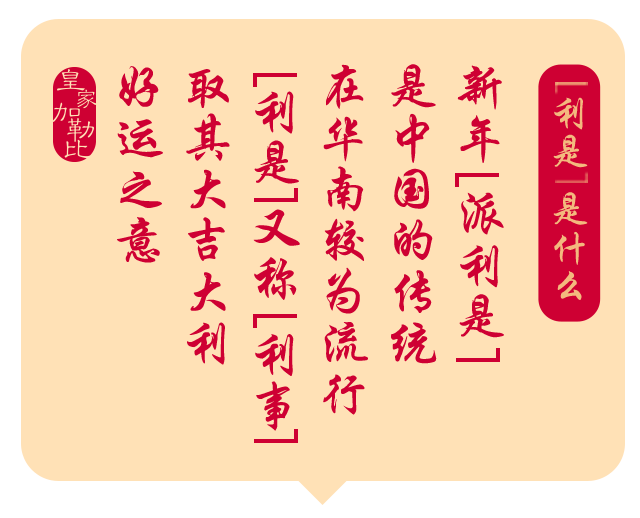 「利是」是什么
新年「派利是」
是中国的传统
在华南较为流行
「利是」又称「利事」
取其大吉大利
好运之意
皇家加勒比